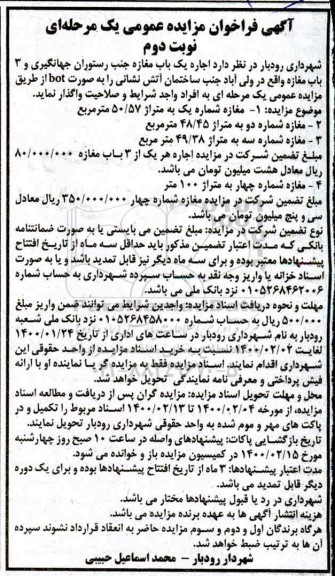 آگهی فراخوان مزایده عمومی یک مرحله‌ای
نوبت دوم
شهرداری رودبار در نظر دارد اجاره یک باب مغازه جنب رستوران جهانگیری و ۳
باب مغازه واقع در ولی آباد جنب ساختمان آتش نشانی را به صورت bot از طریق
مزایده عمومی یک مرحله ای به افراد واجد شرایط و صلاحیت واگذار نماید.
موضوع مزایده: ۱- مغازه شماره یک به متراژ ۵۰/۵۷ مترمربع
۲ - مغازه شماره دو به متراژ ۴۸/۴۵ مترمربع
۳ - مغازه شماره سه به متراژ ۴۹/۳۸ متر مربع
مبلغ تضمین شرکت در مزایده اجاره هر یک از ۳ باب مغازه ۸۰/۰۰۰/۰۰۰
ریال معادل هشت میلیون تومان می باشد.
۴ - مغازه شماره چهار به متراژ ۱۰۰ متر
مبلغ تضمین شرکت در مزایده مغازه شماره چهار ۳۵۰/۰۰۰/۰۰۰ ریال معادل
سی و پنج میلیون تومان می باشد.
نوع تضمین شرکت در مزایده: مبلغ تضمین می بایستی یا به صورت ضمانتنامه
بانکی که مدت اعتبار تضمین مذکور باید حداقل سه ماه از تاریخ افتتاح
پیشنهادها معتبر بوده و برای سه ماه دیگر نیز قابل تمدید باشد و یا به صورت
اسناد خزانه یا واریز وجه نقد به حساب سپرده شهرداری به حساب شماره
۰۱۰۵۳۶۸۴۶۲۰۰۶ نزد بانک ملی می باشد.
مهلت و نحوه دریافت اسناد مزایده: واجدین شرایط می توانند ضمن واریز مبلغ
۵۰۰/۰۰۰ ریال به حساب شماره ۰۱۰۵۳۶۸۴۵۸۰۰۰ نزد بانک ملی شعبه
رودبار به نام شهرداری رودبار در ساعت های اداری از تاریخ ۱۴۰۰/۰۱/۲۴
لغایت ۱۴۰۰/۰۲/۰۲ نسبت به خرید اسناد مزایده از واحد حقوقی این
شهرداری اقدام نمایند. اسناد مزایده فقط به مزایده گر یا نماینده او با ارائه
فیش پرداختی و معرفی نامه نمایندگی تحویل خواهد شد.
محل و مهلت تحویل اسناد مزایده: مزایده گران پس از دریافت و مطالعه اسناد
مزایده، از مورخه ۱۴۰۰/۰۲/۰۴ تا ۱۴۰۰/۰۲/۱۳ اسناد مربوط را تکمیل و در
پاکت های مهر و موم شده به واحد حقوقی شهرداری رودبار تحویل نمایند.
تاریخ بازگشایی پاکات: پیشنهادهای واصله در ساعت ۱۰ صبح روز چهارشنبه
مورخ ۱۴۰۰/۰۲/۱۵ در کمیسیون مزایده باز و خوانده می شود.
مدت اعتبار پیشنهادها: ۳ ماه از تاریخ افتتاح پیشنهادها بوده و برای یک دوره
دیگر قابل تمدید می باشد.
شهرداری در رد یا قبول پیشنهادها مختار می باشد.
هزینه انتشار آگهی ها به عهده برنده مزایده می باشد.
هرگاه برندگان اول و دوم و سوم مزایده حاضر به انعقاد قرارداد نشوند سپرده
آن ها به ترتیب ضبط خواهد شد.
شهردار رودبار - محمد اسماعیل حبیبی